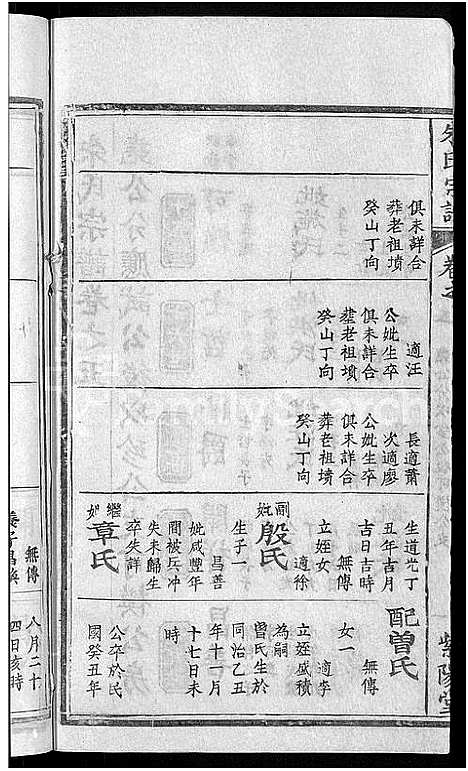 朱氏宗譜
卷之
紫陽堂
俱未詳合
葬老祖墳
癸山丁向
適汪
公妣生卒
俱未詳合
塟老祖墳
癸山丁向
長適蕭
次適廖
公妣生卒
俱未詳合
葬老祖墳
癸山丁向
生道光丁
丑年吉月
吉日吉時
無傳
立姪女
適徐
副妣殷氏
生子一
昌善
妣咸豐年
間被兵冲
失未歸生
卒失詳
繼妣章氏
配曾氏
無傳
女一
適李
立姪盛積
為嗣
曾氏生於
同治乙丑
年十一月
十七日未
時
公卒於民
國癸丑年
無傳
八月二十
四日亥時